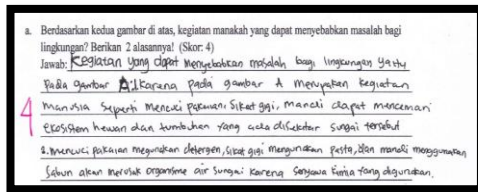 a. Berdasarkan kedua gambar di atas, kegiatan manakah yang dapat menyebabkan masalah bagi
lingkungan? Berikan 2 alasannya! (Skor: 4)
Jawab: Kegiatan yang dapat menyebabkan masalah bagi lingkungan yaitu
Pada gambar A.1.karena pada gambar A merupakan kegiatan
Manusia seperti mencuci pakaian, sikat gigi, mandi dapat mencemari
4
Ekosistem hewan dan tumbuhan yang ada disekitar sungai tersebut
2. mencuci pakaian megunakan detergen, sikat gigi mengunakan pasta, dan mandi menggunakan
Sabun akan merusak organisme air sungai karena senyawa kimia yang digunakan.